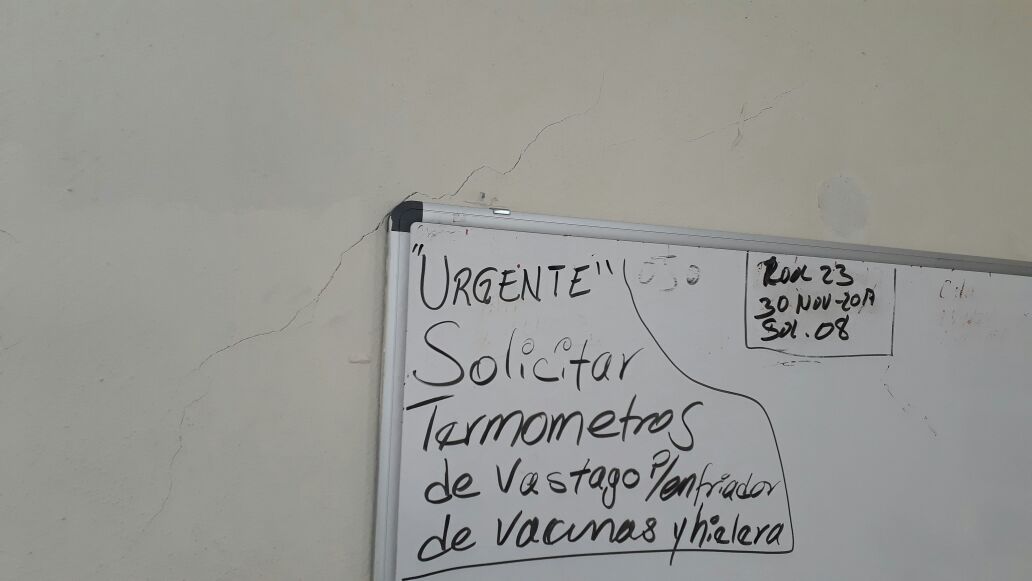 "URGENTE"
Solicitar
Termometros
de Vastago P/enfriador
de Vacunas y hielera
23
30 Nov-2017
Sol. 08